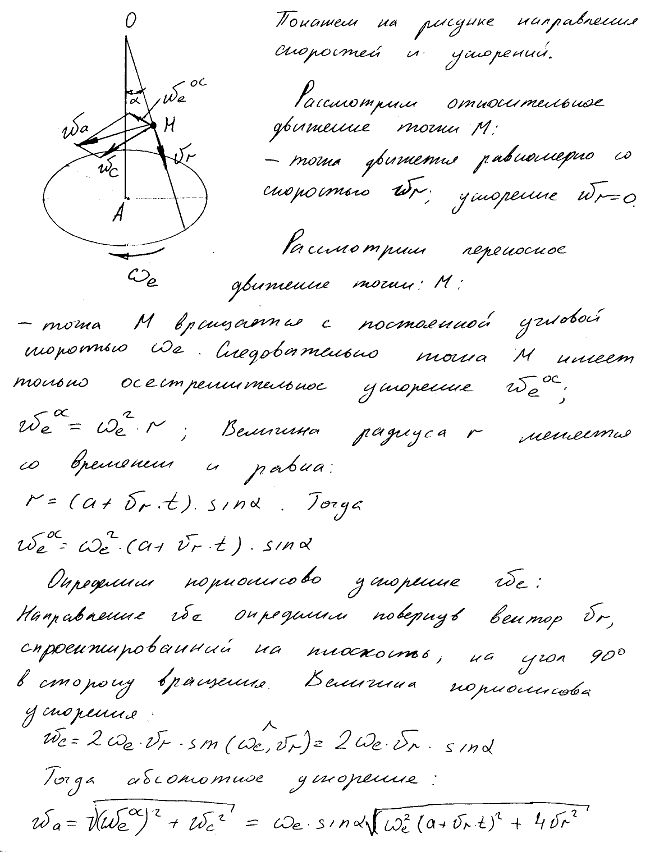 O
α
wₑᵒᶜ
wₐ
M
w_c
vᵣ
A
ωₑ
Покажем на рисунке направления
скоростей и ускорений.
Рассмотрим относительное
движение точки М:
– точка движется равномерно со
скоростью vᵣ; ускорение wᵣ=0.
Рассмотрим переносное
движение точки: М:
– точка М вращается с постоянной угловой
скоростью ωₑ. Следовательно точка М имеет
только осестремительное ускорение wₑᵒᶜ;
wₑᵒᶜ = ωₑ² · r ; Величина радиуса r меняется
со временем и равна:
r = (a + vᵣ · t) · sinα . Тогда
wₑᵒᶜ = ωₑ² · (a + vᵣ · t) · sinα
Определим кориолисово ускорение w_c :
Направление w_c определим повернув вектор vᵣ,
спроектированный на плоскость, на угол 90°
в сторону вращения. Величина кориолисова
ускорения:
w_c = 2ωₑ · vᵣ · sin(ωₑ,^vᵣ) = 2ωₑ · vᵣ · sinα
Тогда абсолютное ускорение :
wₐ = √((wₑᵒᶜ)² + w_c²) = ωₑ · sinα √(ωₑ² (a + vᵣ · t)² + 4vᵣ²)